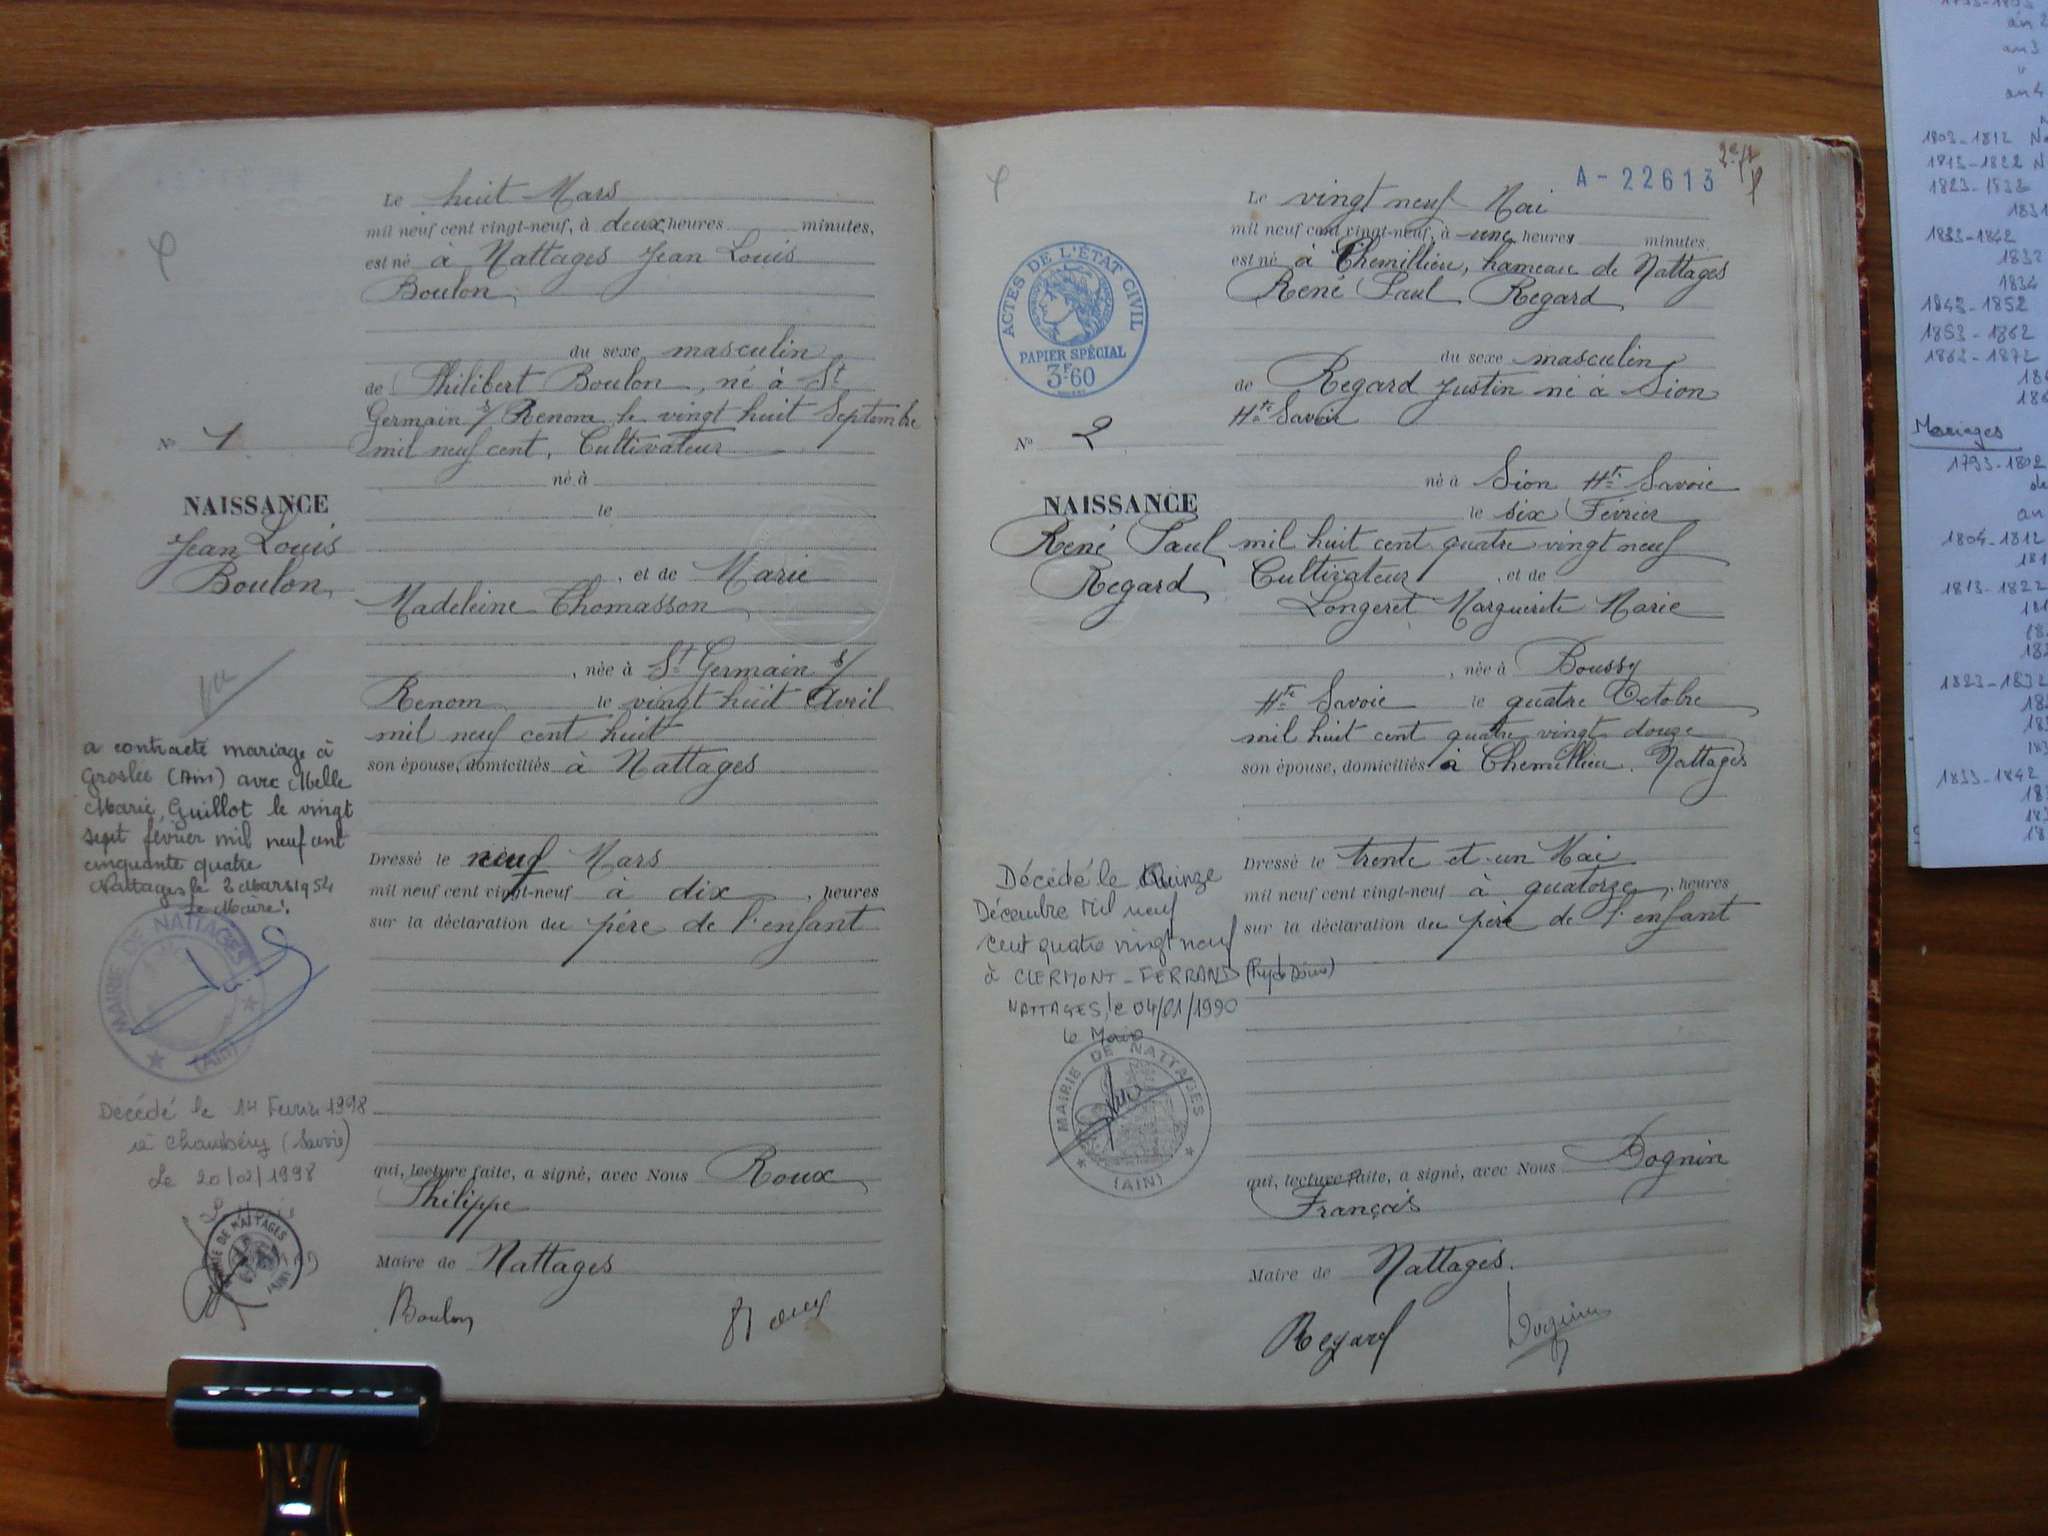 Le huit Mars
mil neuf cent vingt-neuf, à deux heures minutes,
est né à Nattages Jean Louis
Boulon
du sexe masculin
de Philibert Boulon, né à St
Germain s/ Renom le vingt huit Septembre
N° 1
mil neuf cent, Cultivateur
né à
NAISSANCE
le
Jean Louis
Boulon
, et de Marie
Madeleine Thomasson
, née à St Germain s/
Renom le vingt huit Avril
mil neuf cent huit
son épouse, domiciliés à Nattages
a contracté mariage à
Groslée (Ain) avec Melle
Marie, Guillot le vingt
sept février mil neuf cent
cinquante quatre
Nattages le 2 Mars 1954
Le Maire:
MAIRIE DE NATTAGES
(AIN)
Dressé le neuf Mars
mil neuf cent vingt-neuf à dix heures
sur la déclaration du père de l'enfant
Décédé le 14 Fevrier 1998
à Chambéry (Savoie)
Le 20/02/1998
MAIRIE DE NATTAGES
(AIN)
qui, lecture faite, a signé, avec Nous Roux
Philippe
Maire de Nattages
Boulon
Roux
A-22613
Le vingt neuf Mai
mil neuf cent vingt-neuf, à une heures minutes
est né à Chemillieu, hameau de Nattages
René Paul Regard
ACTES DE L'ÉTAT CIVIL
PAPIER SPÉCIAL
3F60
du sexe masculin
de Regard Justin né à Sion
Hte Savoie
N° 2
né à Sion Hte Savoie
NAISSANCE
le six Février
René Paul
Regard
mil huit cent quatre vingt neuf
Cultivateur, et de
Longeret Marguerite Marie
, née à Boussy
Hte Savoie le quatre Octobre
mil huit cent quatre vingt douze
son épouse, domiciliés à Chemillieu. Nattages
Dressé le trente et un Mai
mil neuf cent vingt-neuf à quatorze heures
sur la déclaration du père de l'enfant
Décédé le Quinze
Décembre Mil neuf
cent quatre vingt neuf
à CLERMONT-FERRAND (Puy de Dôme)
NATTAGES, le 04/01/1990
le Maire
MAIRIE DE NATTAGES
(AIN)
qui, lecture faite, a signé, avec Nous Dognin
François
Maire de Nattages.
Regard
Dognin
1793-1803
an 2
an 3
"
an 4
1803-1812 Na
1813-1822 N
1823-1832
1831
1833-1842
1832
1834
1843-1852
1853-1862
1862-1872
Mariages
1793-1802
de
an
1804-1812
1813-1822
1823-1832
1833-1842